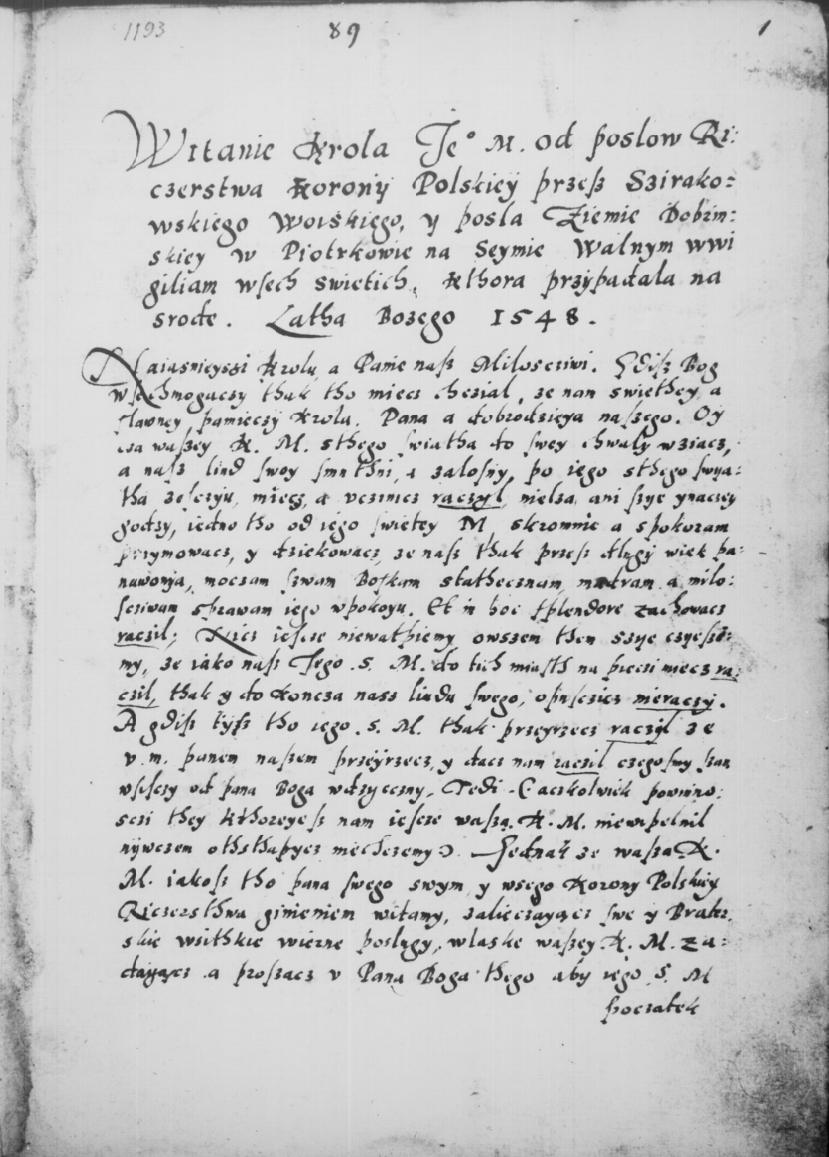 1193 89 1
Witanie Krola Je° M. od poslow Ri:
czerstwa Korony Polskiey przeß Szirako:
wskiego Woiskiego, y posla Ziemie Dobrin:
skiey w Piotrkowie na Seymie Walnym wwi
giliam wsech swietich, Kthora przypadala na
srode. Latha Bozego 1548.
Naiasnieyssi Krolu a Panie naß Milosciwi. Gdiß Bog
wsechmogaczy thak tho miecz chczial, ze nam swiethey a
slawney pamieczy Krola. Pana a dobrodzieya naszego. Oy
cza waszey K. M. sthego swiatha do swey chwaly wziacz,
a naß liud swoy smuthni, a zalosny, po iego sthego swya:
tha zesczyu, miecz, a vczinicz raczyl, nielza ani szye ynaczey
godzy, iedno tho od iego swietey M. skromnie a spokoram
przymowacz, y dziekowacz, ze naß thak przeß dlugy wiek pa:
nawonja, moczam swam Boskam stathecznam, madram a milo:
sciwam sprawam iego wpokoyu. Et in hoc splendore zachowacz
raczil; Nicz iescze niewatpiemy owszem then szye czyeszy:
my, ze iako naß Jego. S. M. do tich miasth na pieczi miecz ra:
czil, thak y do koncza nass liudu swego, opusczicz nieraczy.
A gdiß tyß tho iego. S. M. thak przeyrzecz raczyl ze
v. m. panem naszem przeyrzecz, y dacz nam raczil czegosmy szan
wsisczy od pana Boga wdzyeczny. Tedi Caczkolwiek powinno:
sczi they Kthoreyeß nam iescze wasza. K. M. niewipelnil
nywczem othsthapycz niechczemy. Jednak ze wasza K.
M. iakoß tho pana swego swym y wsego Korony Polskiey
Riczersthwa gimieniem witamy, zalieczayacz swe y Braters
skie wsithkie wierne poslugy, wlaske waszey K. M. Za:
dayacz a proszacz v Pana Boga thego aby iego S. M
poczatek